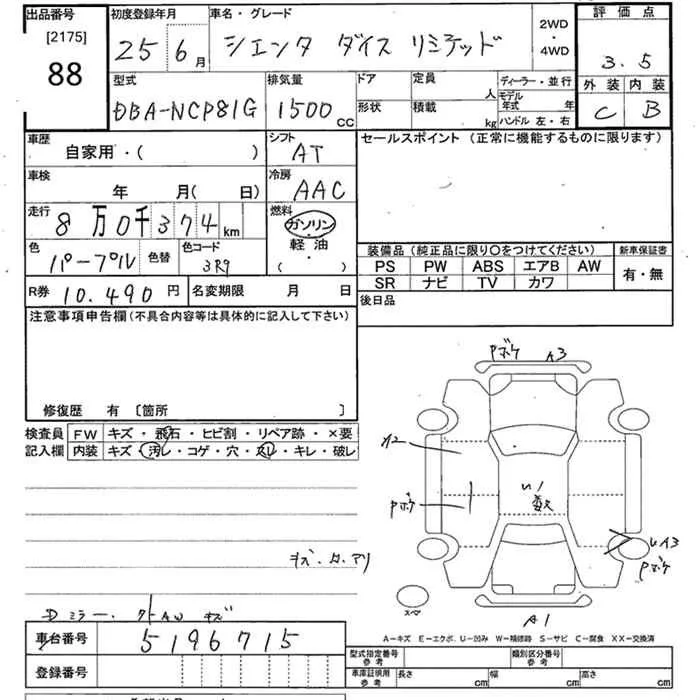 出品番号
[2175]
88
初度登録年月
25 6月
車名・グレード
シエンタ ダイス リミテッド
2WD
・
4WD
評価点
3.5
外装 内装
C B
型式
DBA-NCP81G
排気量
1500 CC
ドア
形状
定員 人
積載 kg
ディーラー・並行
モデル年式 年
ハンドル 左・右
車歴
自家用・( )
シフト
AT
セールスポイント (正常に機能するものに限ります)
車検
年 月( 日)
冷房
AAC
走行
8万0千374km
燃料
ガソリン
・
軽油
( )
色
パープル
色替
色コード
3R9
装備品(純正品に限り○をつけてください)
新車保証書
PS PW ABS エアB AW
SR ナビ TV カワ
有・無
R券 10.490 円
名変期限 月 日
後日品
注意事項申告欄(不具合内容等は具体的に記入して下さい)
修復歴 有 〔箇所 〕
検査員記入欄
FW キズ・飛石・ヒビ割・リペア跡・×要
内装 キズ・汚レ・コゲ・穴・スレ・キレ・破レ
Pボケ A3
A2
Pボケ
U1
数
UA3
Pボケ
スペア
A1
Dミラー
AW キズ
A−キズ E−エクボ U−凹み W−補修跡 S−サビ C−腐食 XX−交換済
車台番号 5196715
登録番号
型式指定番号 参考
類別区分番号 参考
車庫証明用 参考
長さ cm
幅 cm
高さ cm